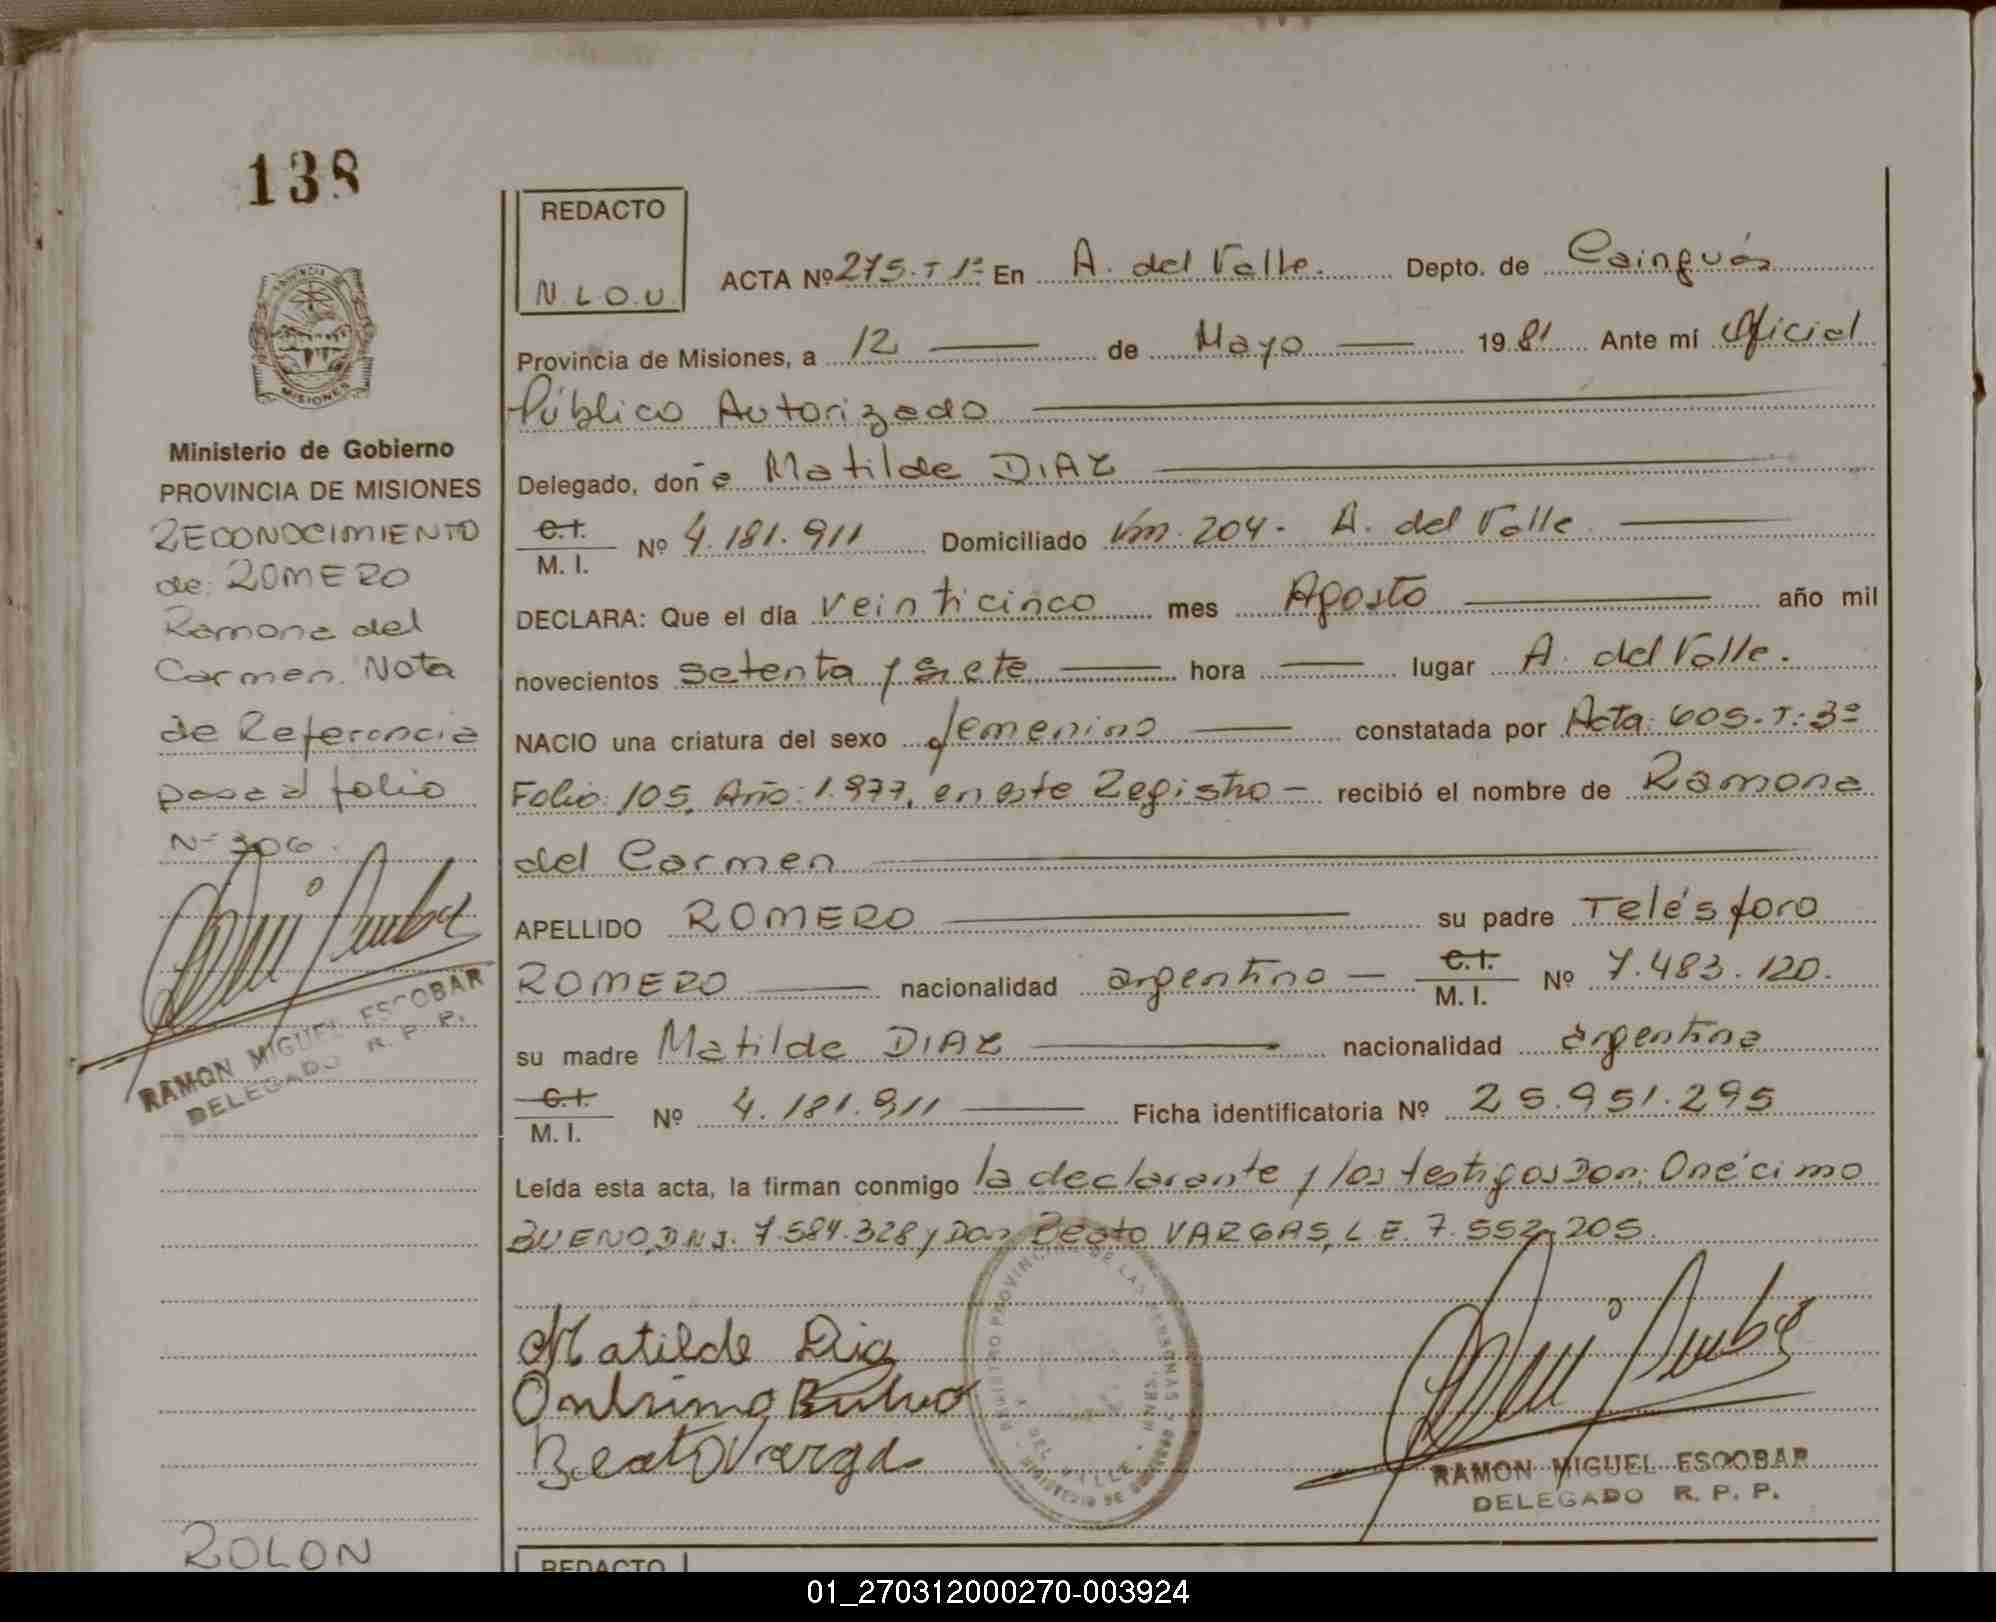 138
REDACTO
N.L.O.U.
ACTA Nº 275.T 1º En A. del Valle. Depto. de Cainguás
Provincia de Misiones, a 12 de Mayo 1981 Ante mí Oficial
Público Autorizado
Delegado, doña Matilde DIAZ
C.I.
M. I. Nº 4.181.911 Domiciliado Km. 204- A. del Valle.
DECLARA: Que el día veinticinco mes Agosto año mil
novecientos setenta y siete hora lugar A. del Valle.
NACIO una criatura del sexo femenino constatada por Acta: 605.T: 3º
Folio: 105, Año: 1.977, en este Registro- recibió el nombre de Ramona
del Carmen
APELLIDO ROMERO su padre Telésforo
ROMERO nacionalidad argentino C.I.
M. I. Nº 7.483.120.
su madre Matilde DIAZ nacionalidad argentina
C.I.
M. I. Nº 4.181.911 Ficha identificatoria Nº 25.951.295
Leída esta acta, la firman conmigo la declarante y los testigos Don: Onécimo
BUENO, D.N.I. 7.584.328 y Don Beato VARGAS, L.E. 7.552.205.
Matilde Dia
Onesimo Bueno
Beato Varga
RAMON MIGUEL ESCOBAR
DELEGADO R. P. P.
PROVINCIA
MISIONES
Ministerio de Gobierno
PROVINCIA DE MISIONES
RECONOCIMIENTO
de: ROMERO
Ramona del
Carmen. Nota
de Referencia
pasa al folio
Nº 306.
RAMON MIGUEL ESCOBAR
DELEGADO R. P. P.
ROLON
REDACTO
01_270312000270-003924